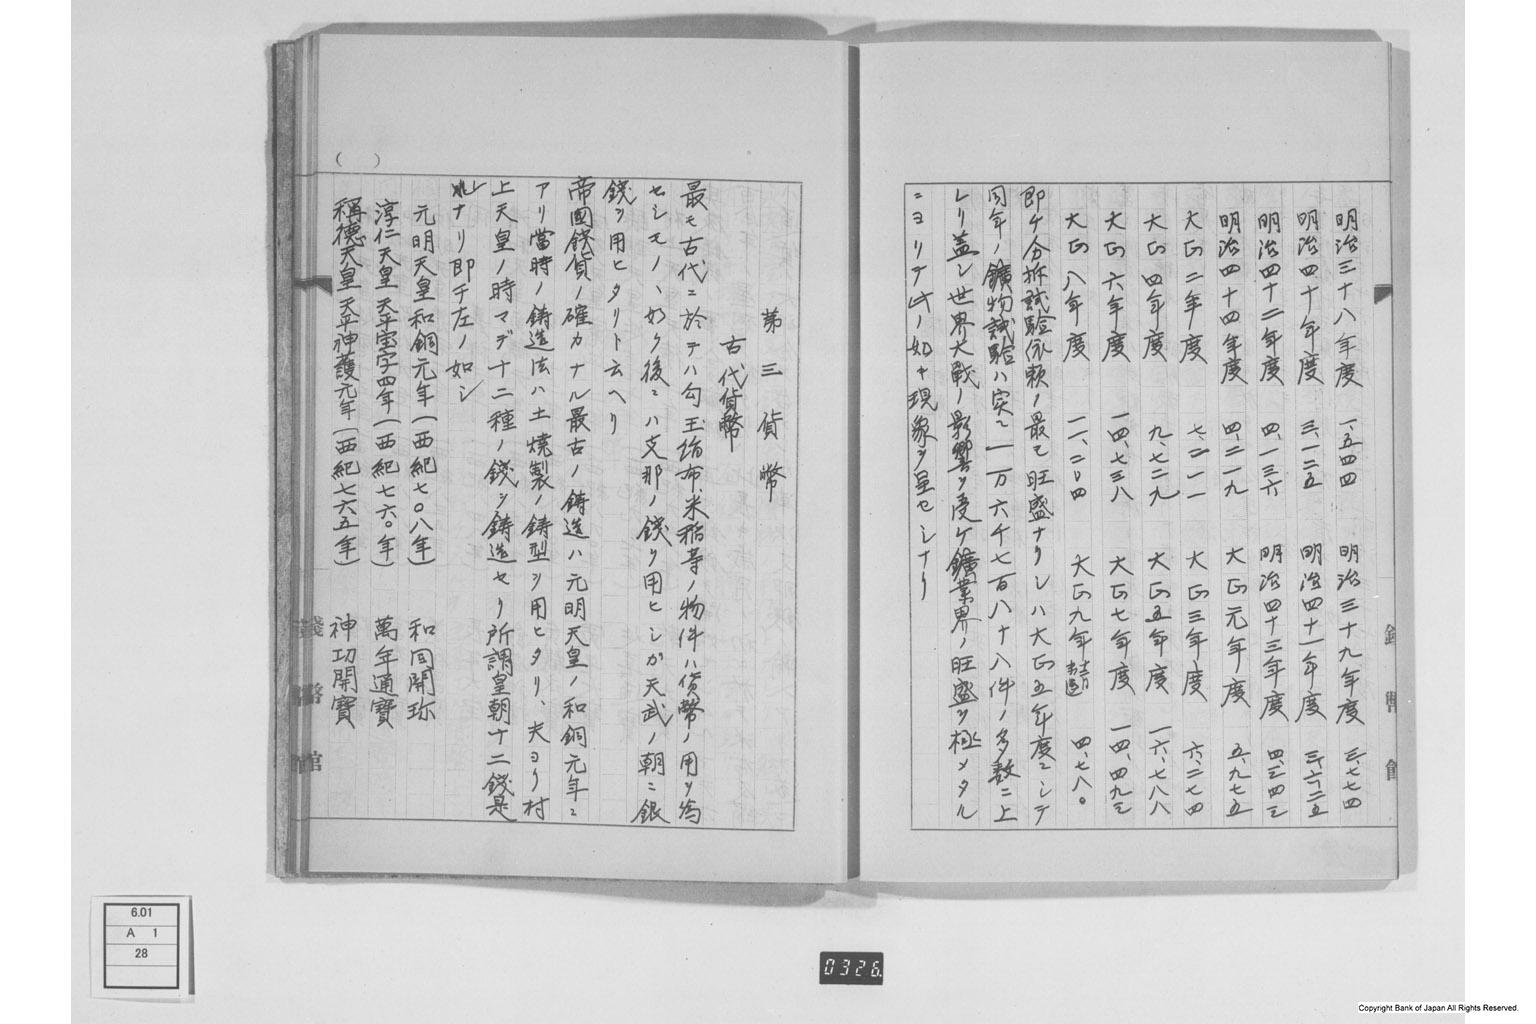 明治三十八年度 一、五四四 明治三十九年度 三、七七四
明治四十年度 三、一二五 明治四十一年度 三、六二五
明治四十二年度 四、一三六 明治四十三年度 四、三四三
明治四十四年度 四、二一九 大正元年度 五、九七五
大正二年度 七、二一一 大正三年度 六、二七四
大正四年度 九、七二九 大正五年度 一六、七八八
大正六年度 一四、七三八 大正七年度 一四、四九三
大正八年度 一一、二〇四 大正九年 四、七八〇
即チ分拆試験依頼ノ最モ旺盛ナリシハ大正五年度ニシテ
同年ノ鑛物試験ハ実ニ一万六千七百八十八件ノ多数ニ上
レリ蓋シ世界大戦ノ影響ヲ受ケ鑛業界ノ旺盛ヲ極メタル
ニヨリテ此ノ如キ現象ヲ呈セシナリ
第三 貨幣
古代貨幣
最モ古代ニ於テハ勾玉絹布、米稲等ノ物件ハ貨幣ノ用ヲ為
セシモノヽ如ク後ニハ支那ノ錢ヲ用ヒシガ天武ノ朝ニ銀
錢ヲ用ヒタリト云ヘリ
帝國錢貨ノ確カナル最古ノ鋳造ハ元明天皇ノ和銅元年ニ
アリ當時ノ鋳造法ハ土燒製ノ鋳型ヲ用ヒタリ、夫ヨリ村
上天皇ノ時マデ十二種ノ錢ヲ鋳造セリ所謂皇朝十二錢是
レナリ即チ左ノ如シ
元明天皇和銅元年(西紀七〇八年) 和同開珎
淳仁天皇天平宝字四年(西紀七六〇年) 萬年通寶
稱德天皇天平神護元年(西紀七六五年) 神功開寶
( )
6.01
A 1
28
0326.
Copyright Bank of Japan All Rights Reserved.